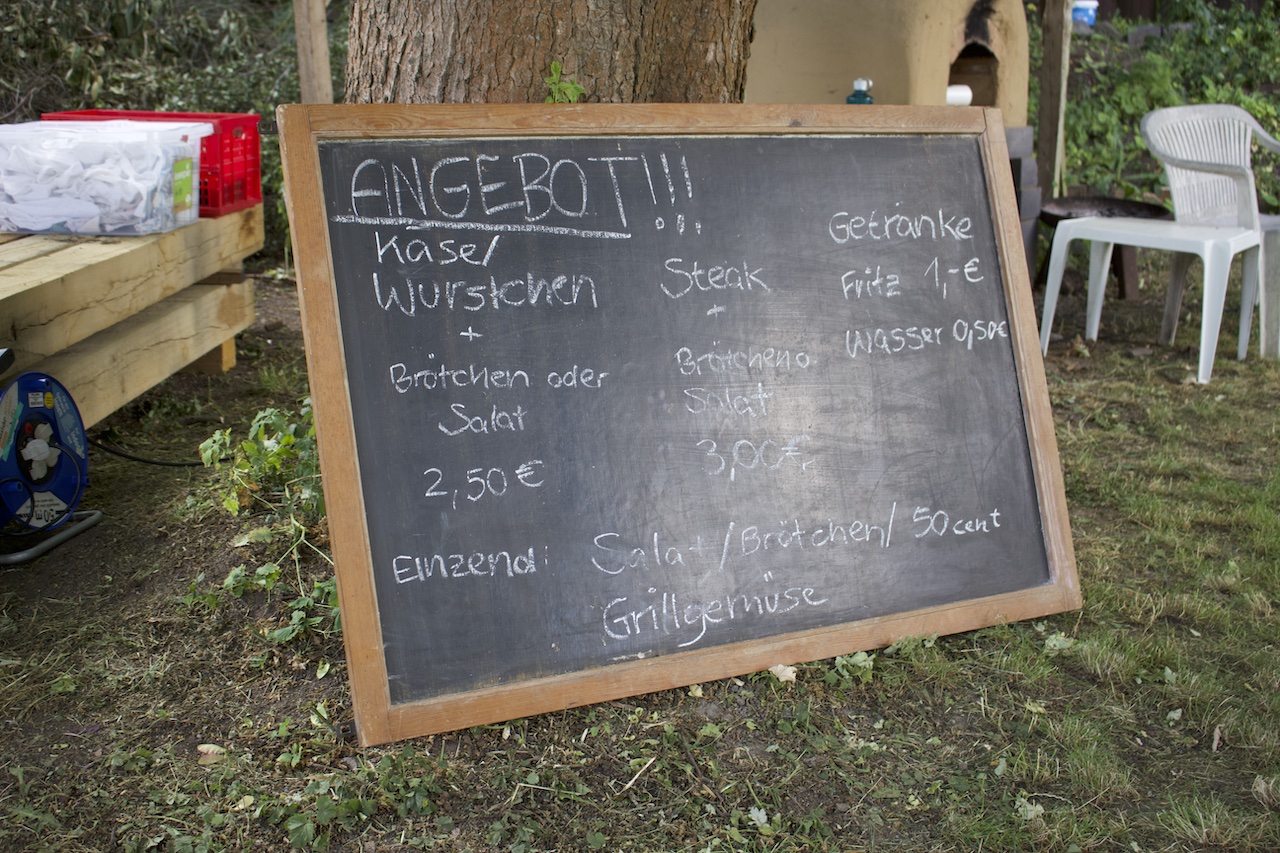 ANGEBOT!!!
Käse/
Würstchen
+
Brötchen oder
Salat
2,50€
Steak
+
Brötchen o.
Salat
3,00€,
Getränke
Fritz 1,-€
Wasser 0,50€
Einzend: Salat/Brötchen/ 50 cent
Grillgemüse